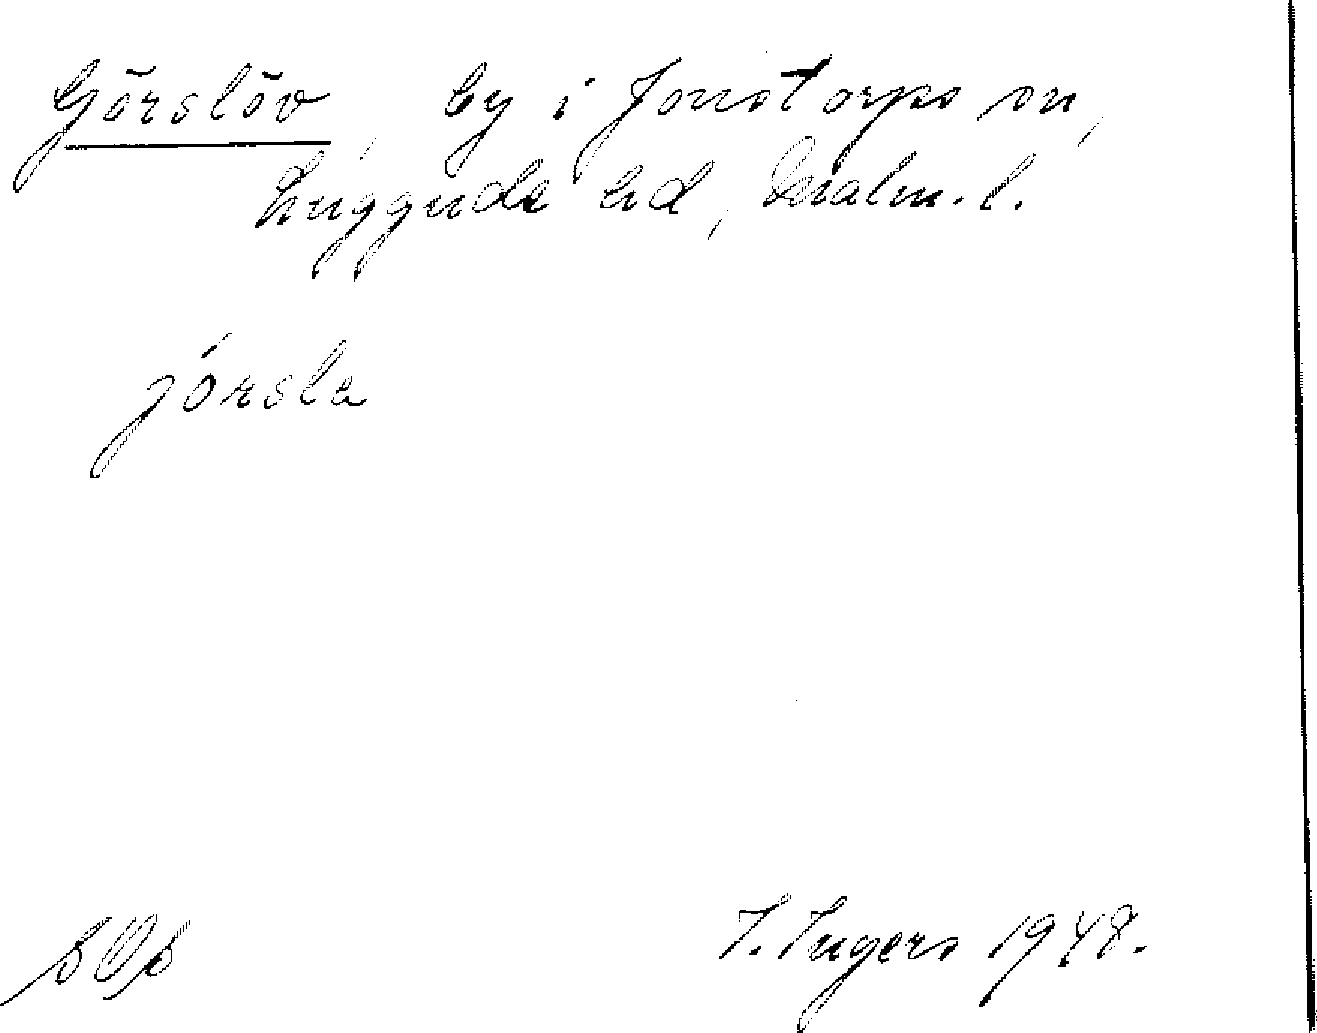 Görslöv, by i Jonstorps sn,
Luggude hd, Malm. l.
jórsla
I. Ingers 1948.